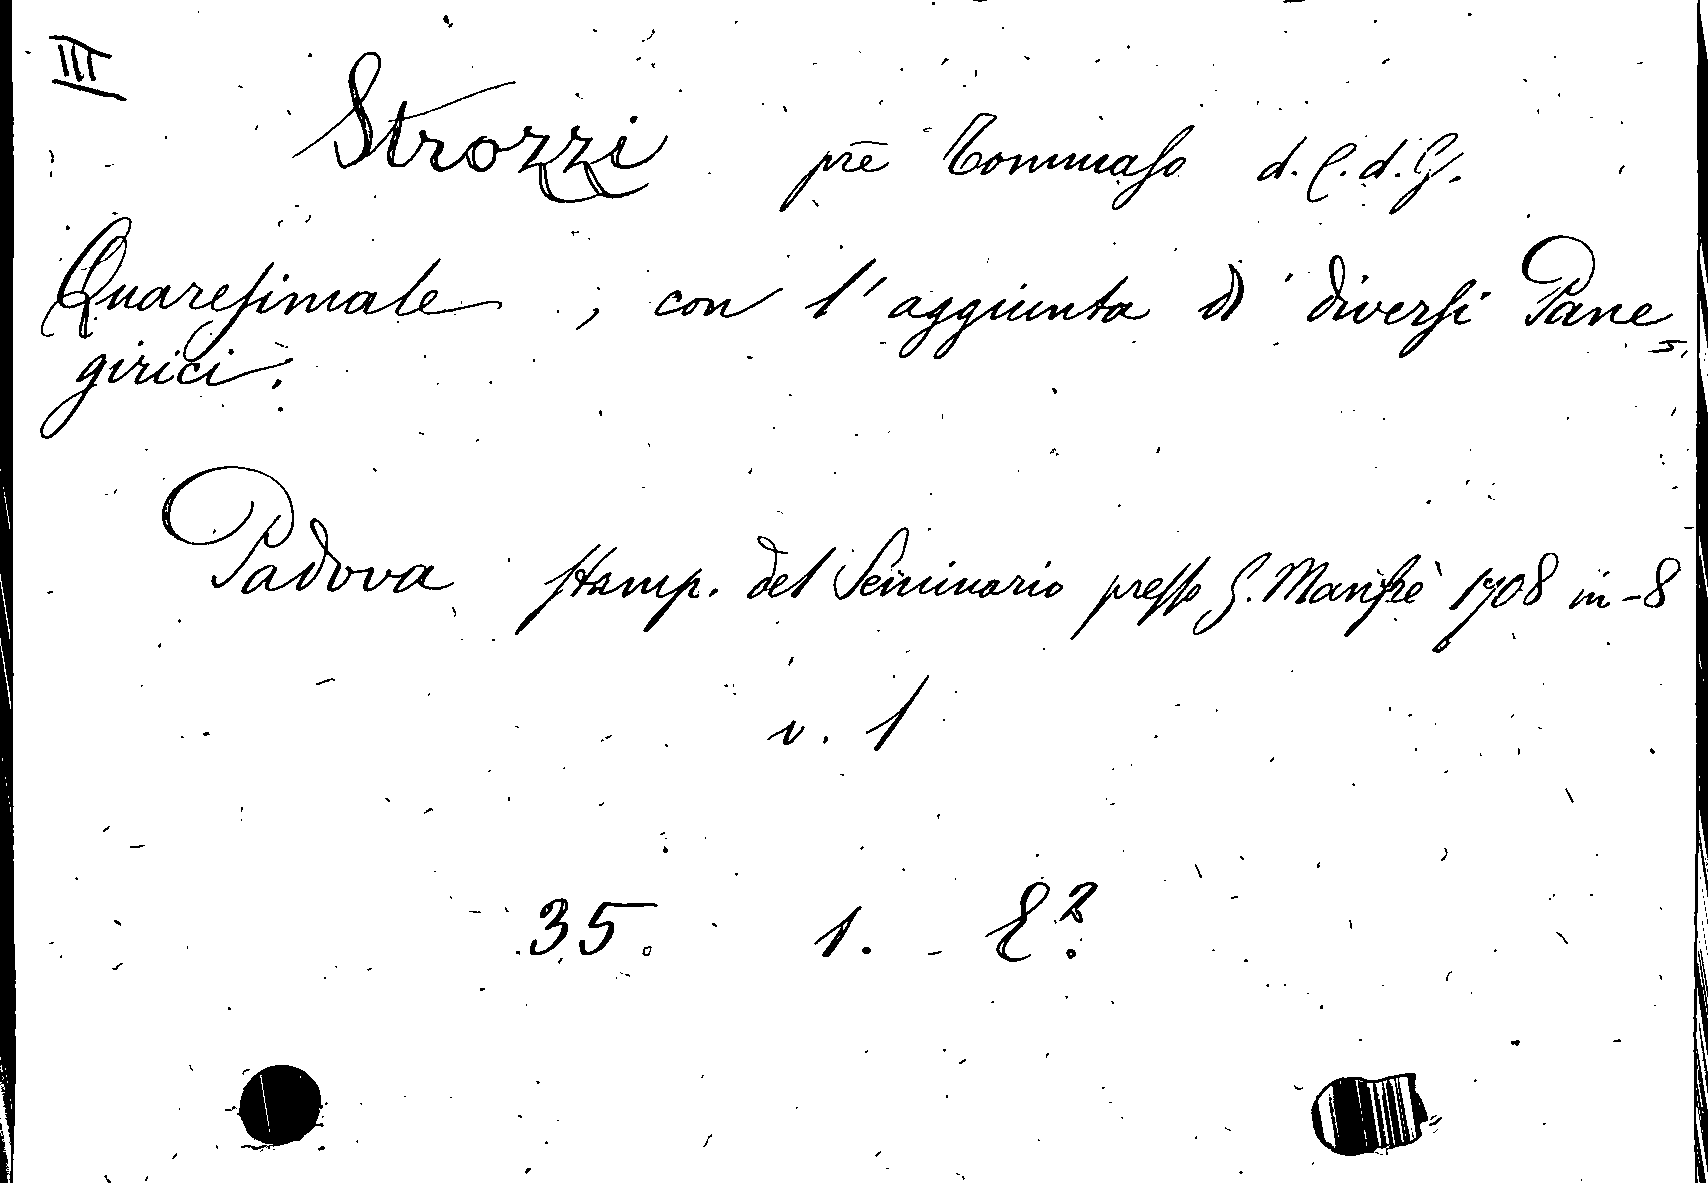 III
Strozzi prē Tommaso d. C. d. G.
Quaresimale, con l'aggiunta di diversi Pane=
girici.
Padova stamp. del Seminario presso G. Manfrè 1708 in-8
v. 1
35. 1. E2.